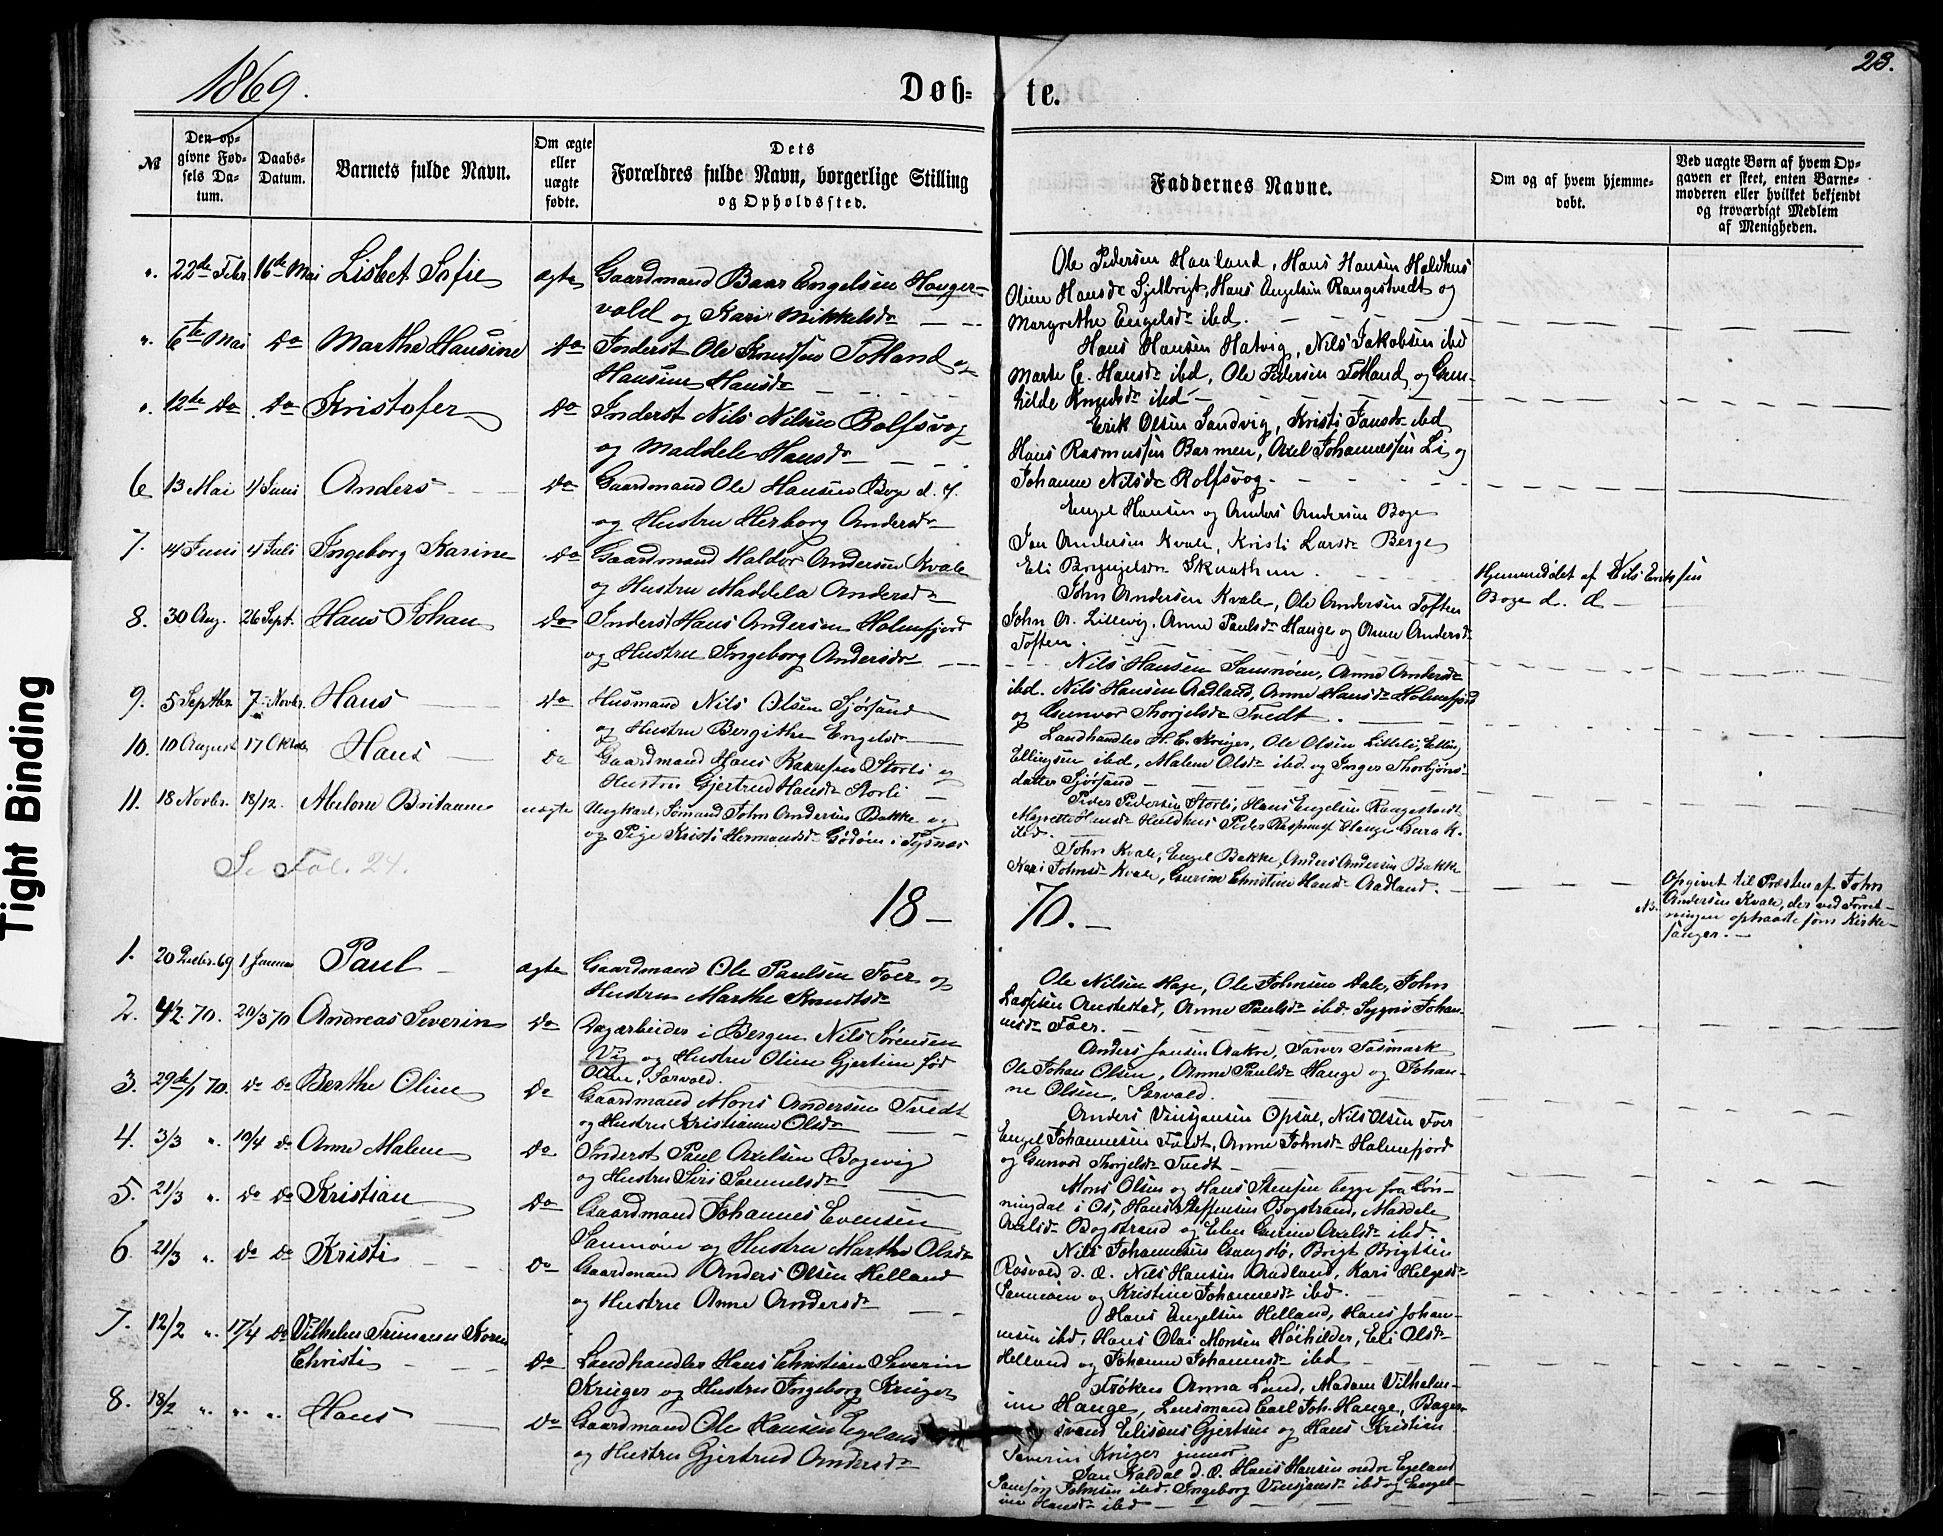 1869.
Døb-
te.
23.
№
Den op-
givne Fød-
sels Da-
tum.
Daabs-
Datum.
Barnets fulde Navn.
Om ægte
eller
uægte
fødte.
Dets
Forældres fulde Navn, borgerlige Stilling
og Opholdssted.
Faddernes Navne.
Om og af hvem hjemme-
døbt.
Ved uægte Børn af hvem Op-
gaven er skeet, enten Barne-
moderen eller hvilket bekjendt
og troværdigt Medlem
af Menigheden.
". 22de Febr. 16de Mai Lisbet Sofie ægte Gaardmand Baar Engelsen Hauger-
vold og Kari Mikkelsdr
Ole Pedersen Hauland, Hans Hansen Haldhus
Oline Hansdr Hans Engelsen Rangestvedt og
Margrethe Engelsdr ibd.
". 6te Mai Do Marthe Hansine Do Inderst Ole Knudsen Totland og
Hansine Hansdr
Hans Hansen Hatvig, Nils Jakobsen ibd
Marte C. Hansdr ibd, Ole Pedersen Totland og Gun-
hilde Knudsdr ibd
". 12te Do Do Kristofer Do Inderst Nils Nilsen Rolfsvog
og Maddele Hansdr
Erik Olsen Sandvig, Kristi Jansdr ibd
Hans Rasmussen Barmen, Axel Johannessen Li og
Johanne Nilsdr Rolfsvog
6 13 Mai 4 Juni Anders Do Gaardmand Ole Hansen Boge d. y.
og Hustru Herborg Andersdr
Engel Hansen og Anders Andersen Boge
Jan Andersen Kvale, Kristi Larsdr Berge
Eli
7. 14 Juni 4 Juli Ingeborg Karine Do Gaardmand Haldor Andersen Kvale
og Hustru Maddela Andersdr
Hjemmedøbt af Nils Eriksen
Boge d. d
John Andersen Kvale, Ole Andersen Toften
John A. Lillevig, Anne Paulsdr Hauge og Anne Andersdr
Toften
8. 30 Aug. 26 Sept. Hans Johan Do Inderst Hans Andersen Holmefjord
og Hustru Ingeborg Andersdr
Nils Hansen Samnøen, Anne Andersdr
ibd. Nils Hansen Aadland, Anne Hansdr Holmefjord
og Gunvor Thorjelsdr Tvedt
9. 5 Septbr 7 Novbr. Hans Do Husmand Nils Olsen Sjørsand
og Hustru Bergithe Engelsdr
Landhandler H. C. Krüger, Ole Olsen Litteli, Elling
Ellingsen ibd, Malene Olsdr ibd og Inger Thorbjøns-
datter Sjørsand
10. 10 August 17 Oktob. Hans Do Gaardmand Hans Storli og
Hustru Gjertrud Hansdr Storli
Peder Pedersen Storli, Hans Engelsen Rangestvedt
Magrethe Hansdr Haldhus Peder Hauge
ibd.
11. 18 Novbr. 18/12. Abelone Britanne uægte Ungkarl, Sømand John Andersen Bakke og
og Pige Kristi Hermandsdr Gødøen i Tysnæs
John Kvale, Engel Bakke, Anders Andersen Bakke
Kari Johnsdr Kvale, Christine Hansdr Aadland.
NB. Opgivet til Præsten af John
Andersen Kvale, der ved Forret-
ningen optraadte som Kirke-
sanger.
Se Fol. 24.
18 — 70. —
1. 20 Decbr. 69 1 Januar Paul ægte Gaardmand Ole Paulsen Foer og
Hustru Marthe Knudtsdr
Ole Nilsen Hage, Ole Johnsen Dale, John
Anne Paulsdr ibd. Johan-
nesdr Foer.
2. 4/2 70. 20/3 70 Andreas Severin Do Dagarbeider i Bergen Nils Sørensen
Vig og Hustru Oline Gjertine fød
Olsen, Sævold.
Anders Jansen Aakre, Farver Fasmark
Ole Johan Olsen, Anne Paulsdr Hauge og Johan-
ne Olsen, Sævold.
3. 29de/1 70. Do Do Berthe Oline Do Gaardmand Mons Andersen Tvedt
og Hustru Kristianne Olsdr
Anders Vinsjansen Opsal, Nils Olsen Foer
Engel Johannesen Tvedt, Anne Johnsdr Holmefjord
og Gunvor Thorjelsdr Tvedt
4. 3/3 ". 10/4 Do Anne Malene Do Inderst Paul Axelsen Bogevig
og Hustru Siri Samuelsdr
Mons Olsen og Hans Stensen begge fra Løn-
ningdal i Os, Hans Steffensen Bogstrand, Maddele
Axelsdr Bogstrand og Elen Axelsdr ibd.
5. 21/3 ". Do Do Kristian Do Gaardmand Johannes Evensen
Samnøen og Hustru Marthe Olsdr
Nils Johannesen Gangstø, Brigt Brigtsen
Røsvold d. Æ. Nils Hansen Aadland, Kari Helgesdr
Samnøen og Kristine Johannesdr ibd.
6. 21/3 ". Do Do Kristi Do Gaardmand Anders Olsen Helland
og Hustru Anne Andersdr
Hans Engelsen Helland, Hans Johan-
nesen ibd, Hans Olai Monsen Høihilder, Eli Olsdr
Helland og Johanne Johannesdr ibd
7. 12/2 ". 17/4 Do Vilhelm Frimann Koren
Christi Do Landhandler Hans Christian Severin
Krüger og Hustru Ingeborg Krüger
Frøken Anna Lund, Madam Vilhelm-
ine Hauge, Lensmand Carl Joh. Hauge, Bager-
svend Elisæus Gjertsen og Hans Kristian
Severin Krüger junior
8. 18/2 ". ". ". Hans Do Gaardmand Ole Hansen Egeland
og Hustru Gjertrud Andersdr
Jan Kaldal d. Æ. Hans Hansen nedre Egeland
Samson Johnsen ibd, Ingeborg Vinsjansdr ibd og Engel-
ine Hansdr ibd
Tight Binding